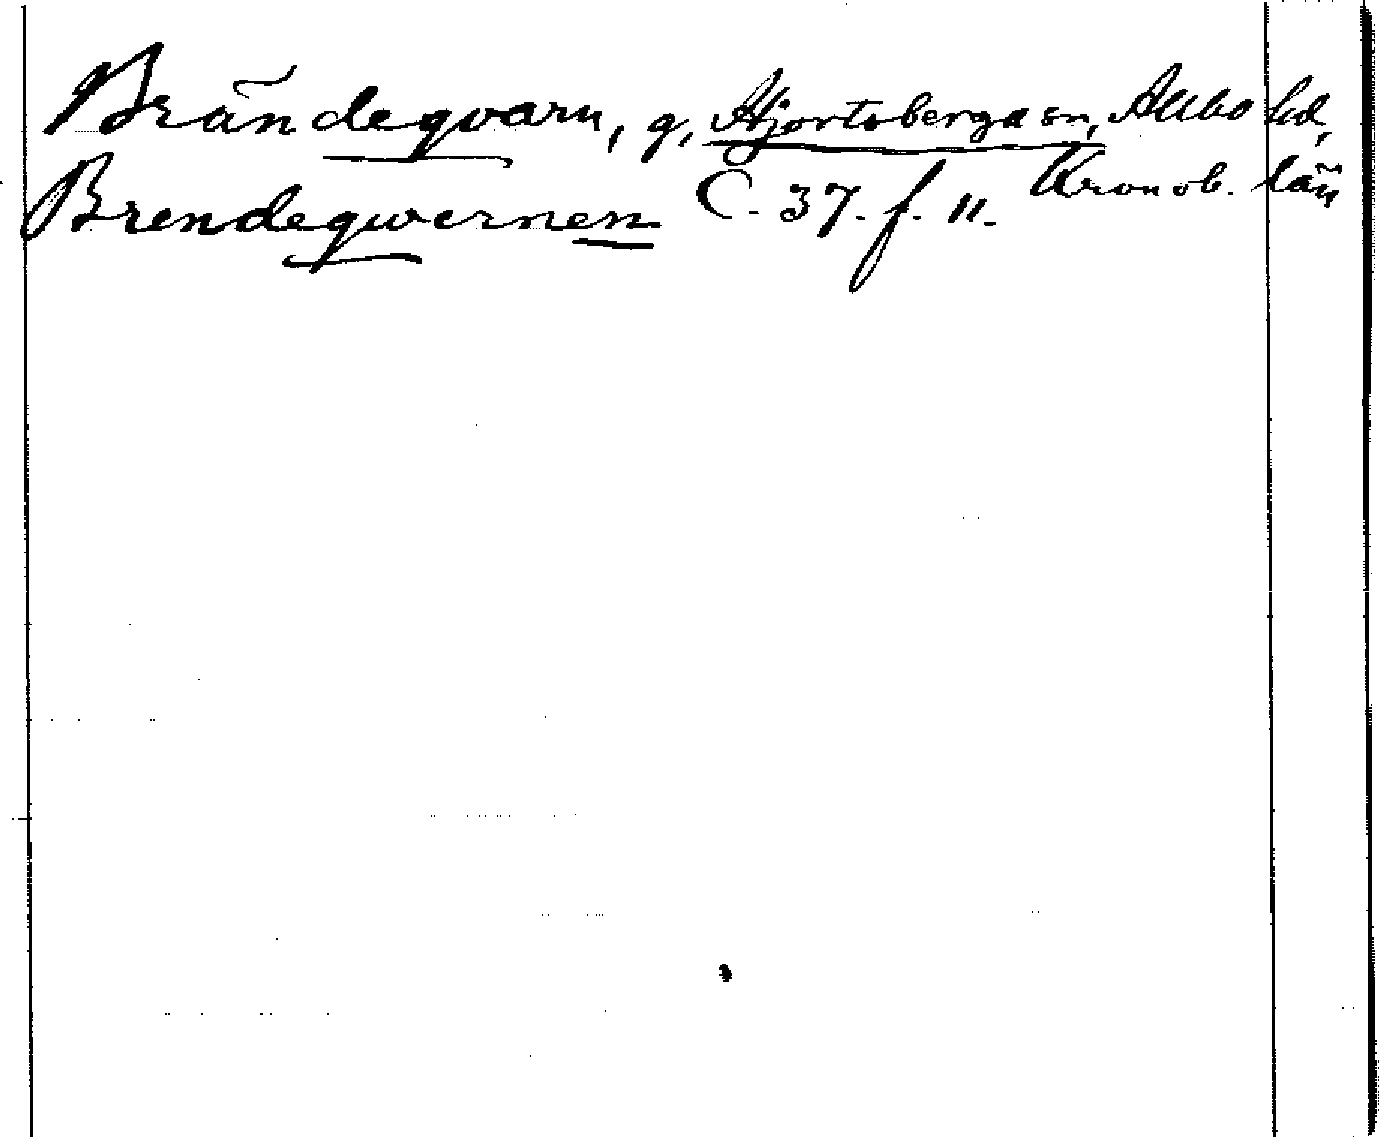 Brändeqvarn, g, Hjortsberga sn, Allbo hd,
Kronob. län
Brendeqwernen C. 37. f. 11.